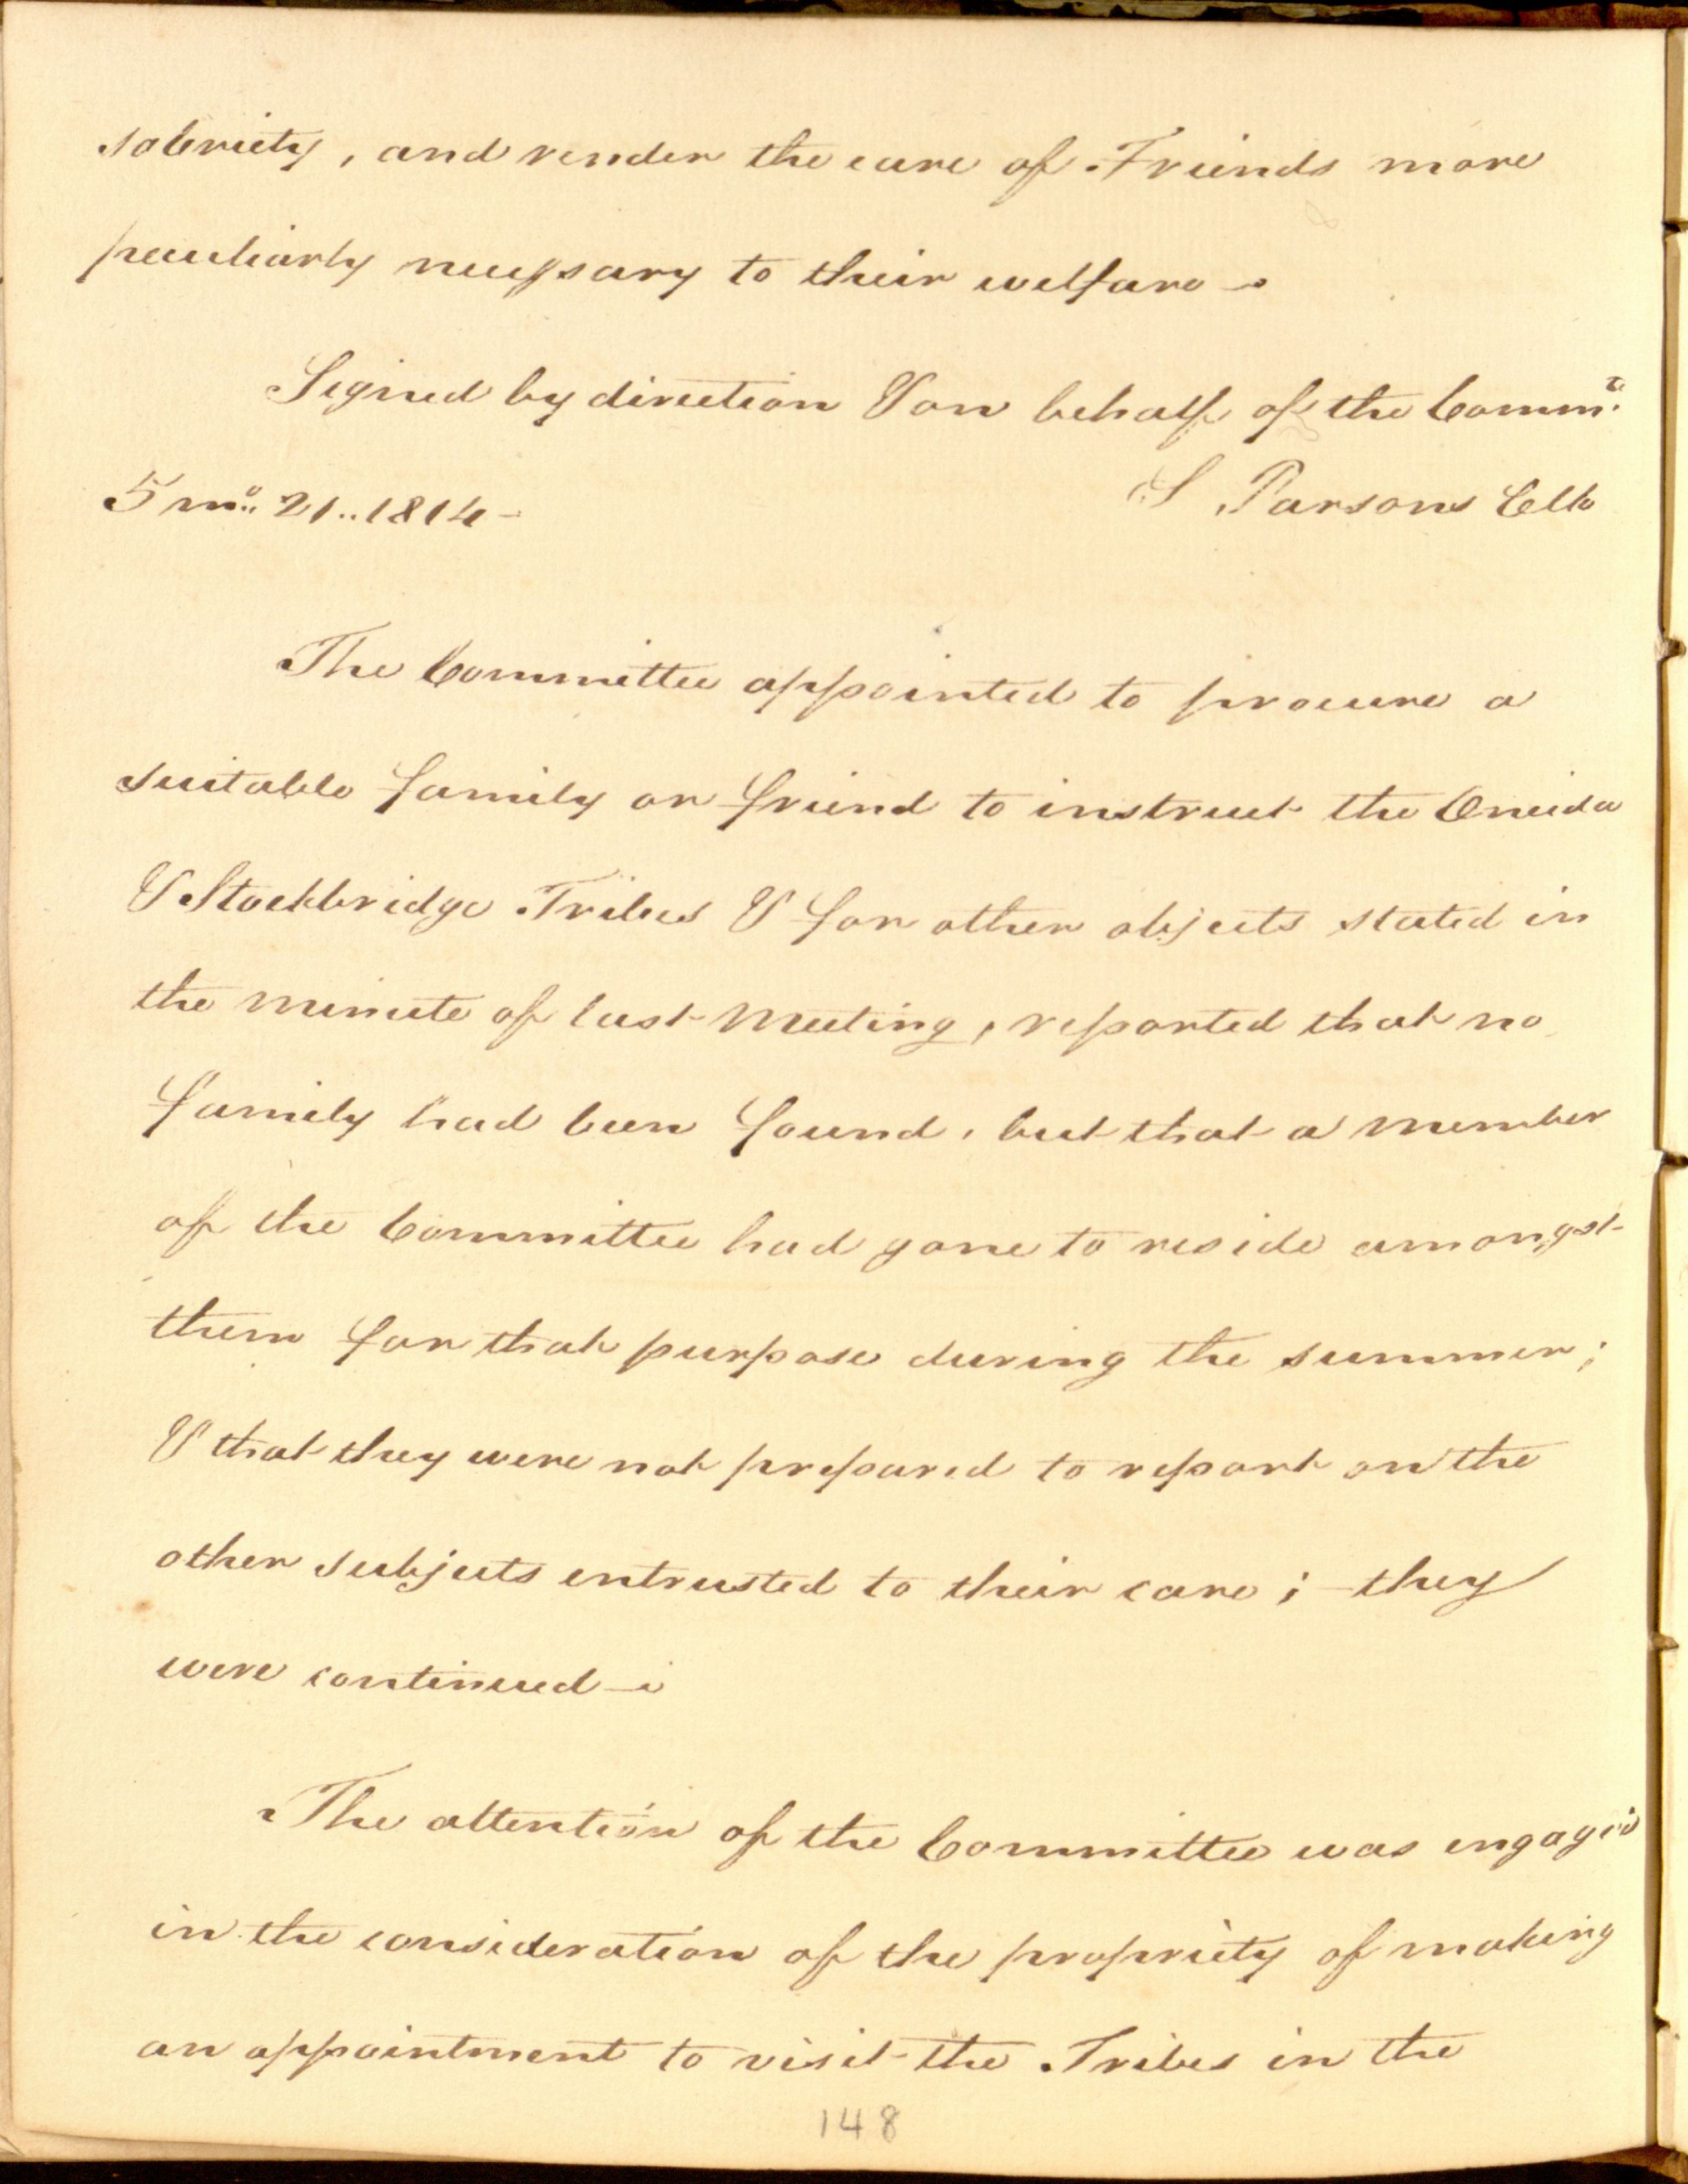 sobriety, and render the care of Friends more
peculiarly necessary to their welfare -
Signed by direction & on behalf of the Comm.te
5 mo.. 21.. 1814 -
S Parsons Clk
The Committee appointed to procure a
suitable family or friend to instruct the Oneida
& Stockbridge Tribes & for other objects stated in
the minute of last Meeting, reported that no
family had been found, but that a member
of the Committee had gone to reside amongst
them for that purpose during the summer;
& that they were not prepared to report on the
other subjects entrusted to their care; they
were continued -
The attention of the Committee was engag'd
in the consideration of the propriety of making
an appointment to visit the Tribes in the
148